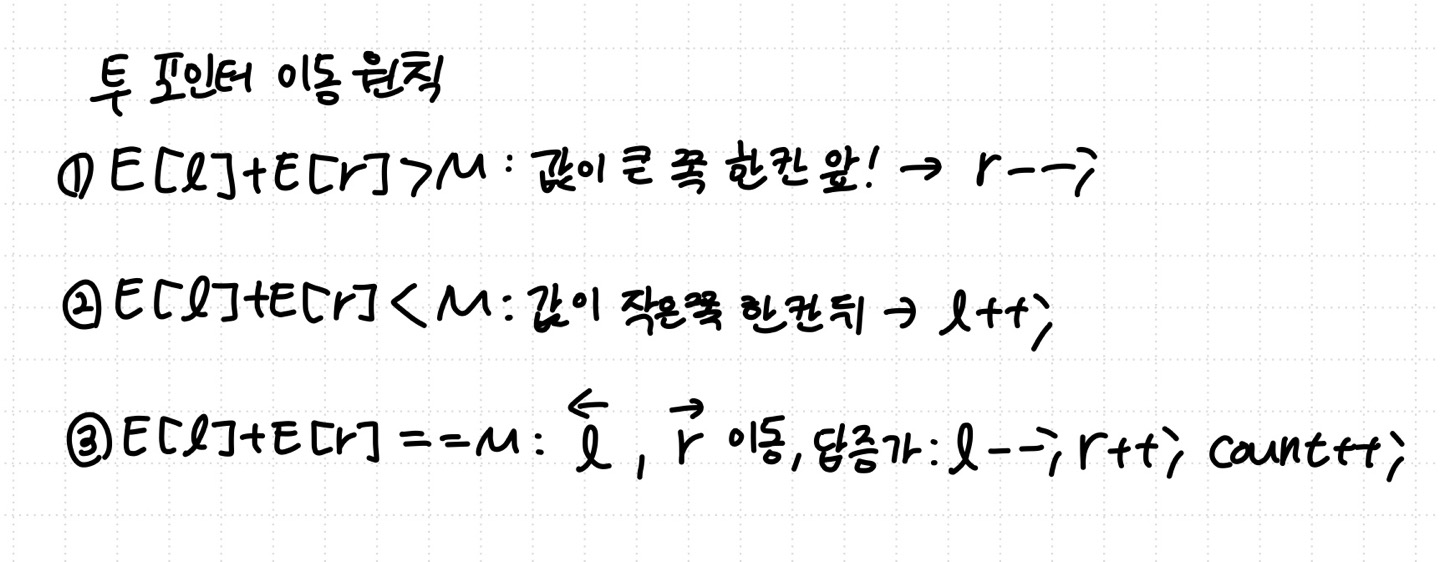 투 포인터 이동 원칙
① E[l]+E[r]>M : 값이 큰 쪽 한칸 앞! → r--;
② E[l]+E[r]<M : 값이 작은쪽 한칸뒤 → l++;
③ E[l]+E[r]==M : ←l, →r 이동, 답증가: l--; r++; count++;